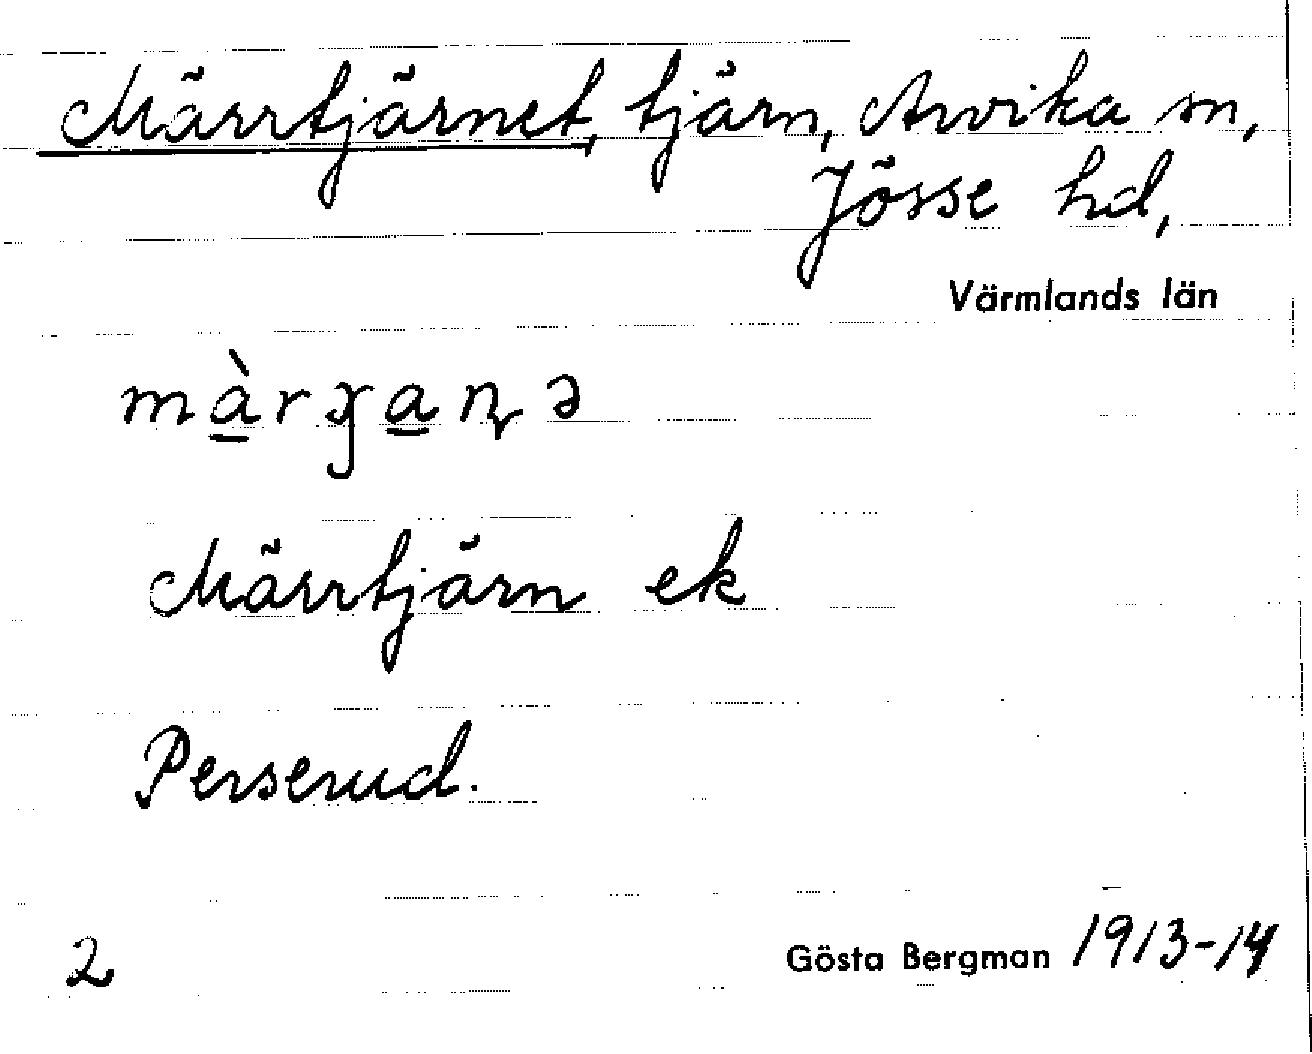 Märrtjärnet, tjärn, Arvika sn,
Jösse hd,
Värmlands län
Märrtjärn ek
Perserud.
2
Gösta Bergman 1913-14